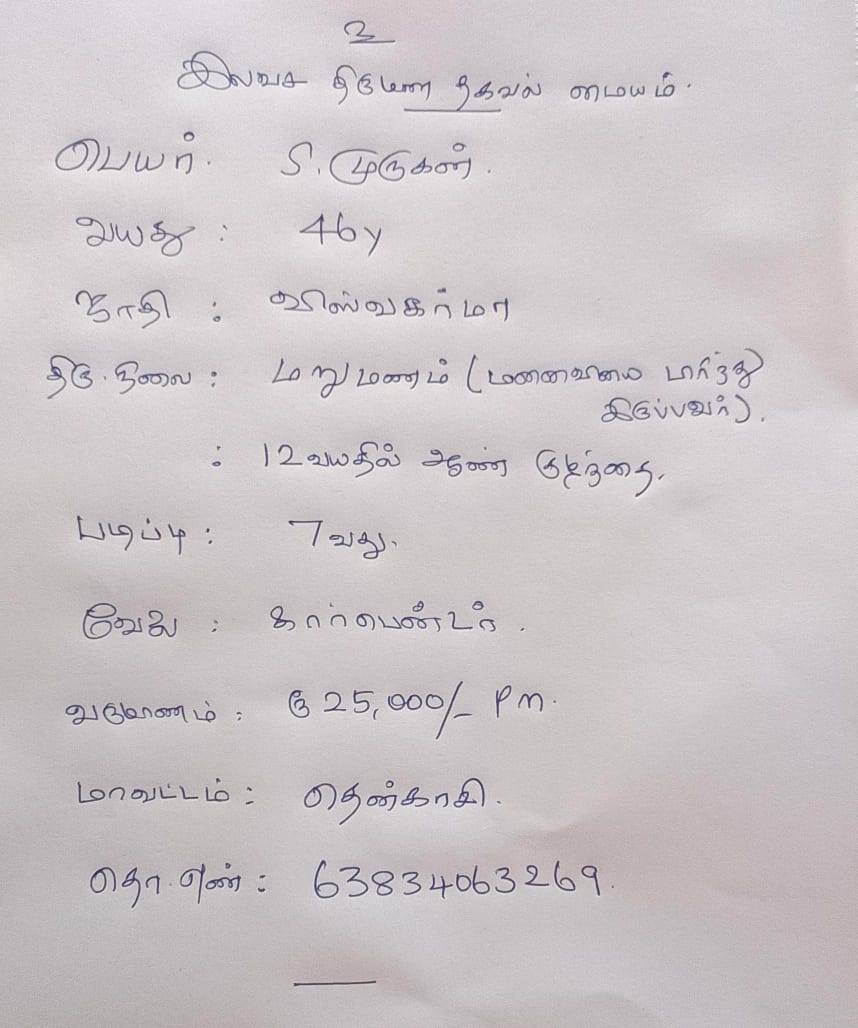 உ
இலவச திருமண தகவல் மையம்.
பெயர். S. முருகன்.
வயது : 46y
ஜாதி : விஸ்வகர்மா
திரு. நிலை : மறுமணம் (மனைவியை பார்த்து
இருப்பவர்).
: 12 வயதில் ஆண் குழந்தை.
படிப்பு : 7வது.
வேலை : கார்பெண்டர்.
வருமானம் : ரூ 25,000/- PM.
மாவட்டம் : தென்காசி.
தொ. எண் : 63834063269.